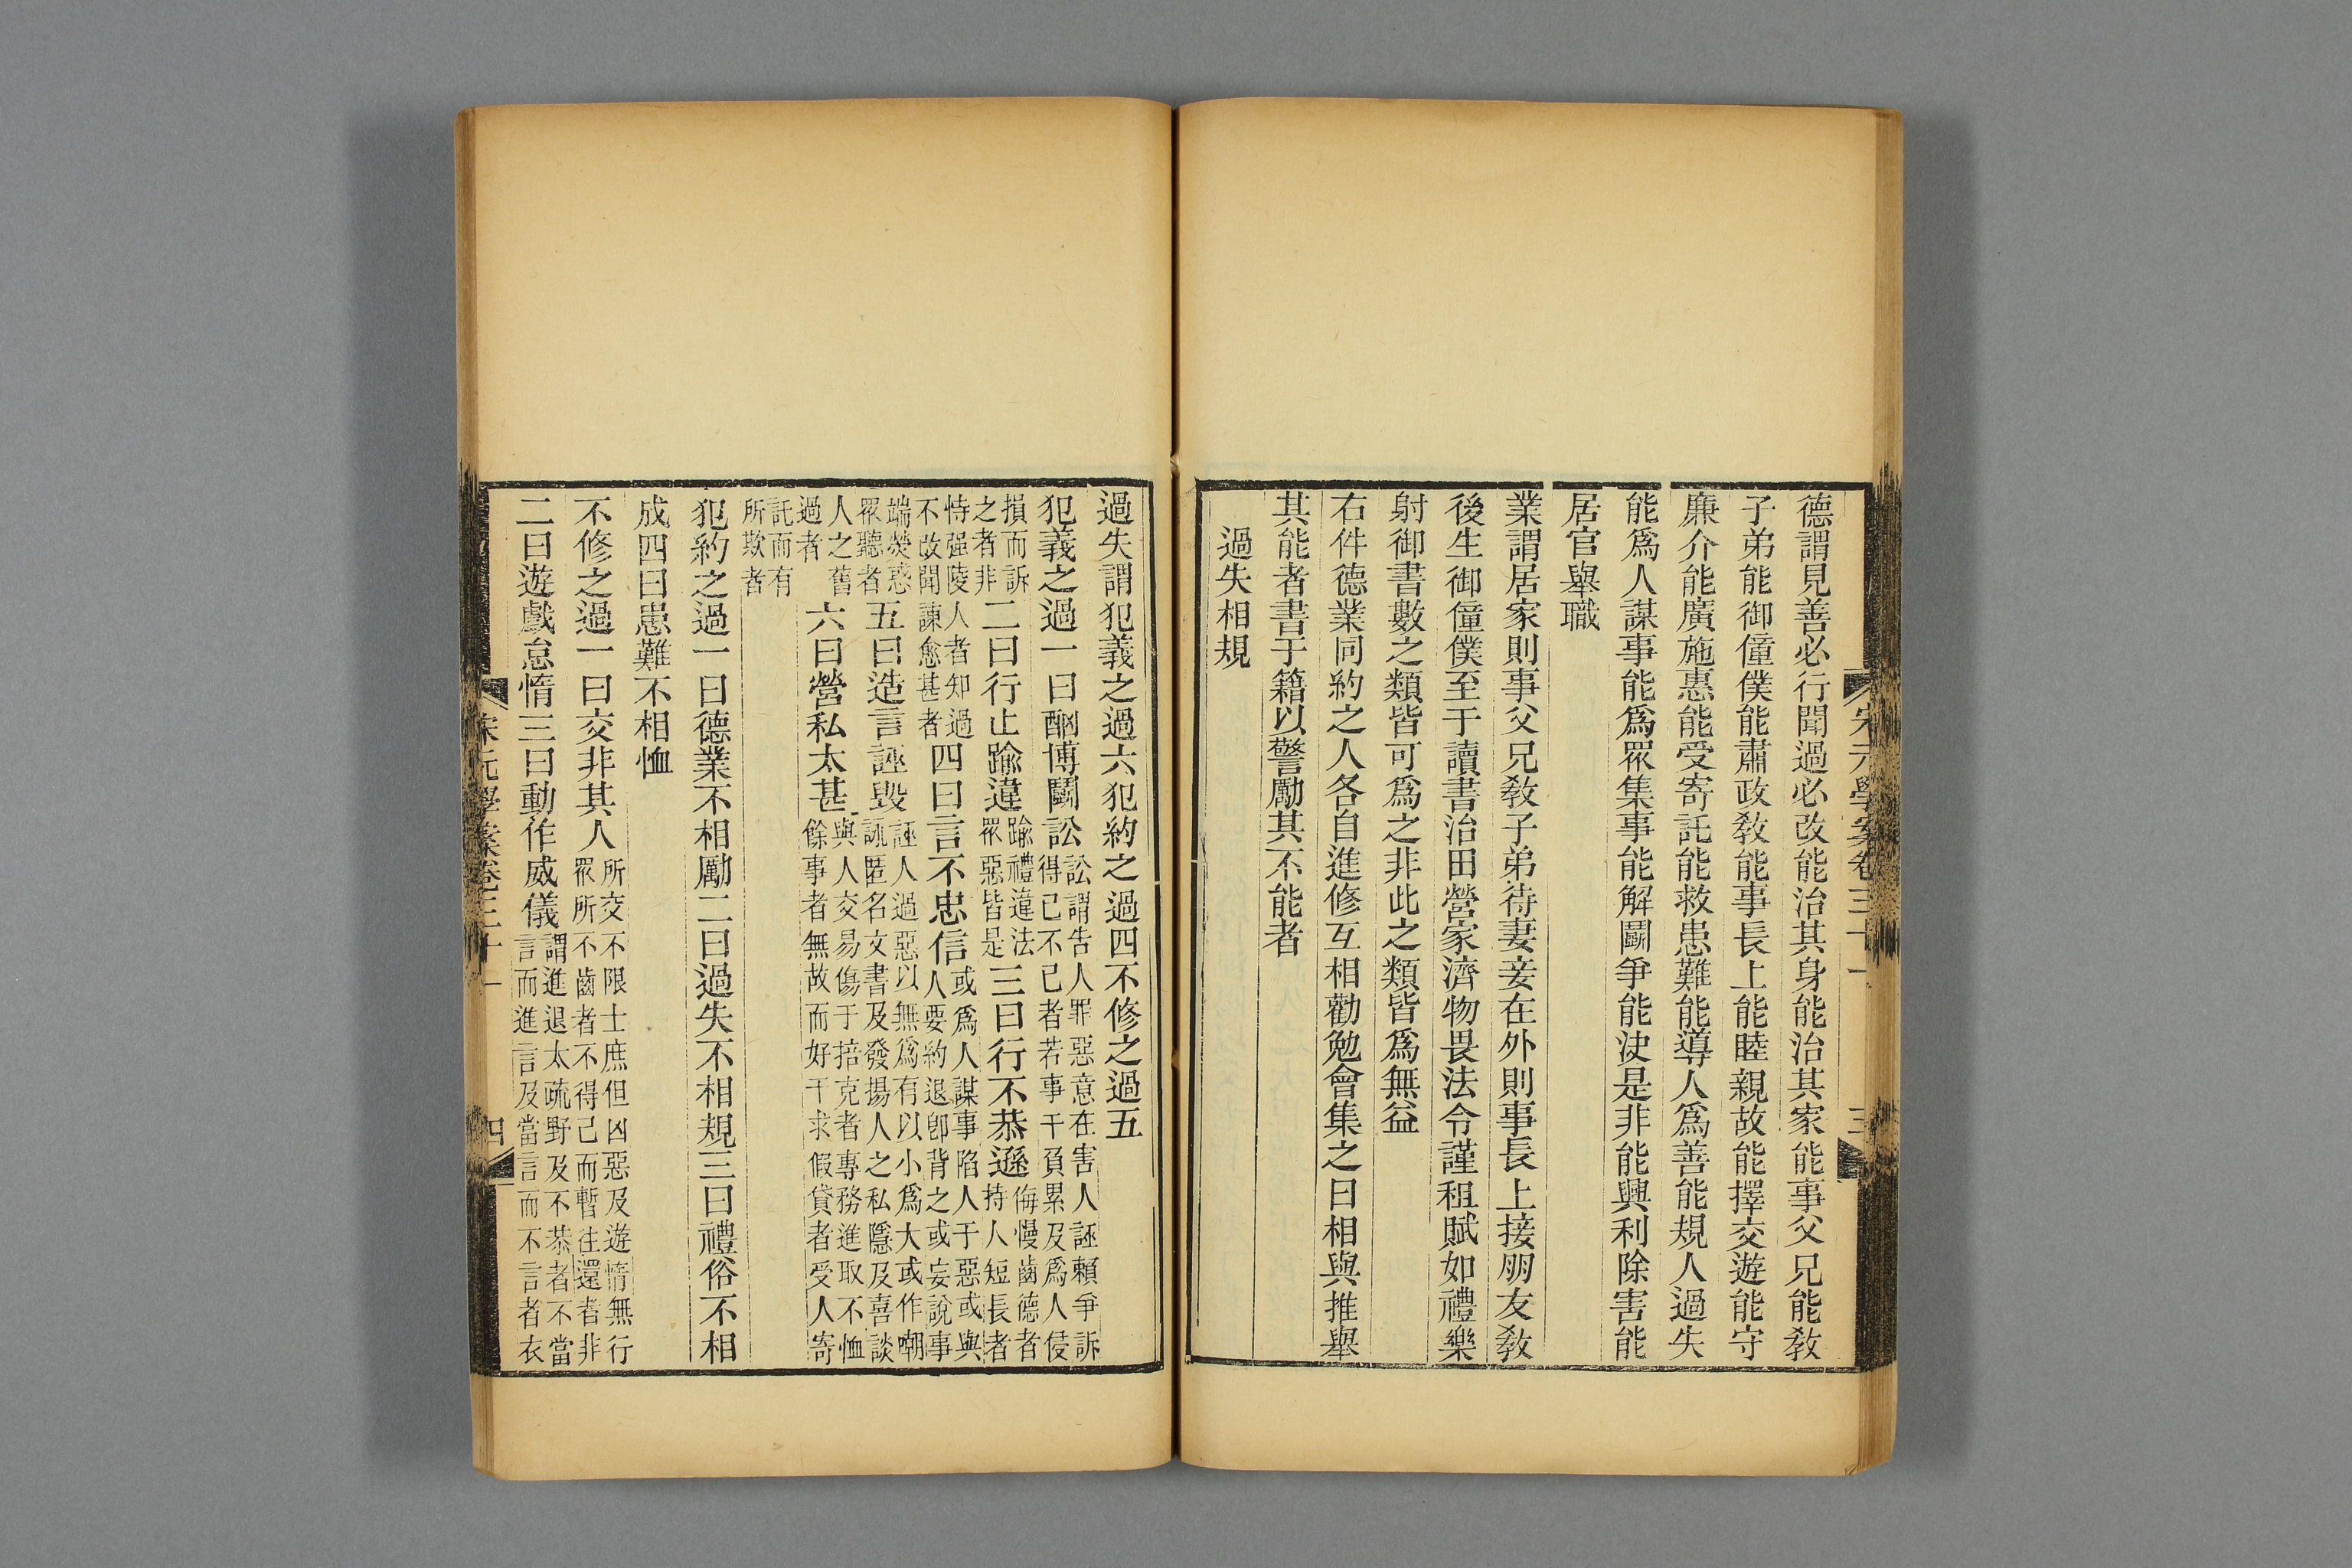 宋元學案卷三十一
三
德謂見善必行聞過必改能治其身能治其家能事父兄能敎
子弟能御僮僕能肅政敎能事長上能睦親故能擇交遊能守
廉介能廣施惠能受寄託能救患難能導人爲善能規人過失
能爲人謀事能爲眾集事能解鬭爭能決是非能興利除害能
居官舉職
業謂居家則事父兄敎子弟待妻妾在外則事長上接朋友敎
後生御僮僕至于讀書治田營家濟物畏法令謹租賦如禮樂
射御書數之類皆可爲之非此之類皆爲無益
右件德業同約之人各自進修互相勸勉會集之日相與推舉
其能者書于籍以警勵其不能者
過失相規
過失謂犯義之過六犯約之過四不修之過五
犯義之過一曰酗博鬭訟訟謂告人罪惡意在害人誣賴爭訴得已不已者若事干負累及爲人侵
損而訴之者非二曰行止踰違踰禮違法眾惡皆是三曰行不恭遜侮慢齒德者持人短長者
恃强陵人者知過不改聞諫愈甚者四曰言不忠信或爲人謀事陷人于惡或與人要約退卽背之或妄說事
端熒惑眾聽者五曰造言誣毀誣人過惡以無爲有以小爲大或作嘲詠匿名文書及發揚人之私隱及喜談
人之舊過者六曰營私太甚與人交易傷于掊克者專務進取不恤餘事者無故而好干求假貸者受人寄
託而有所欺者
犯約之過一曰德業不相勵二曰過失不相規三曰禮俗不相
成四曰患難不相恤
不修之過一曰交非其人所交不限士庶但凶惡及遊惰無行眾所不齒者不得已而暫往還者非
二曰遊戲怠惰三曰動作威儀謂進退太疏野及不恭者不當言而進言及當言而不言者衣
宋元學案卷三十一
四